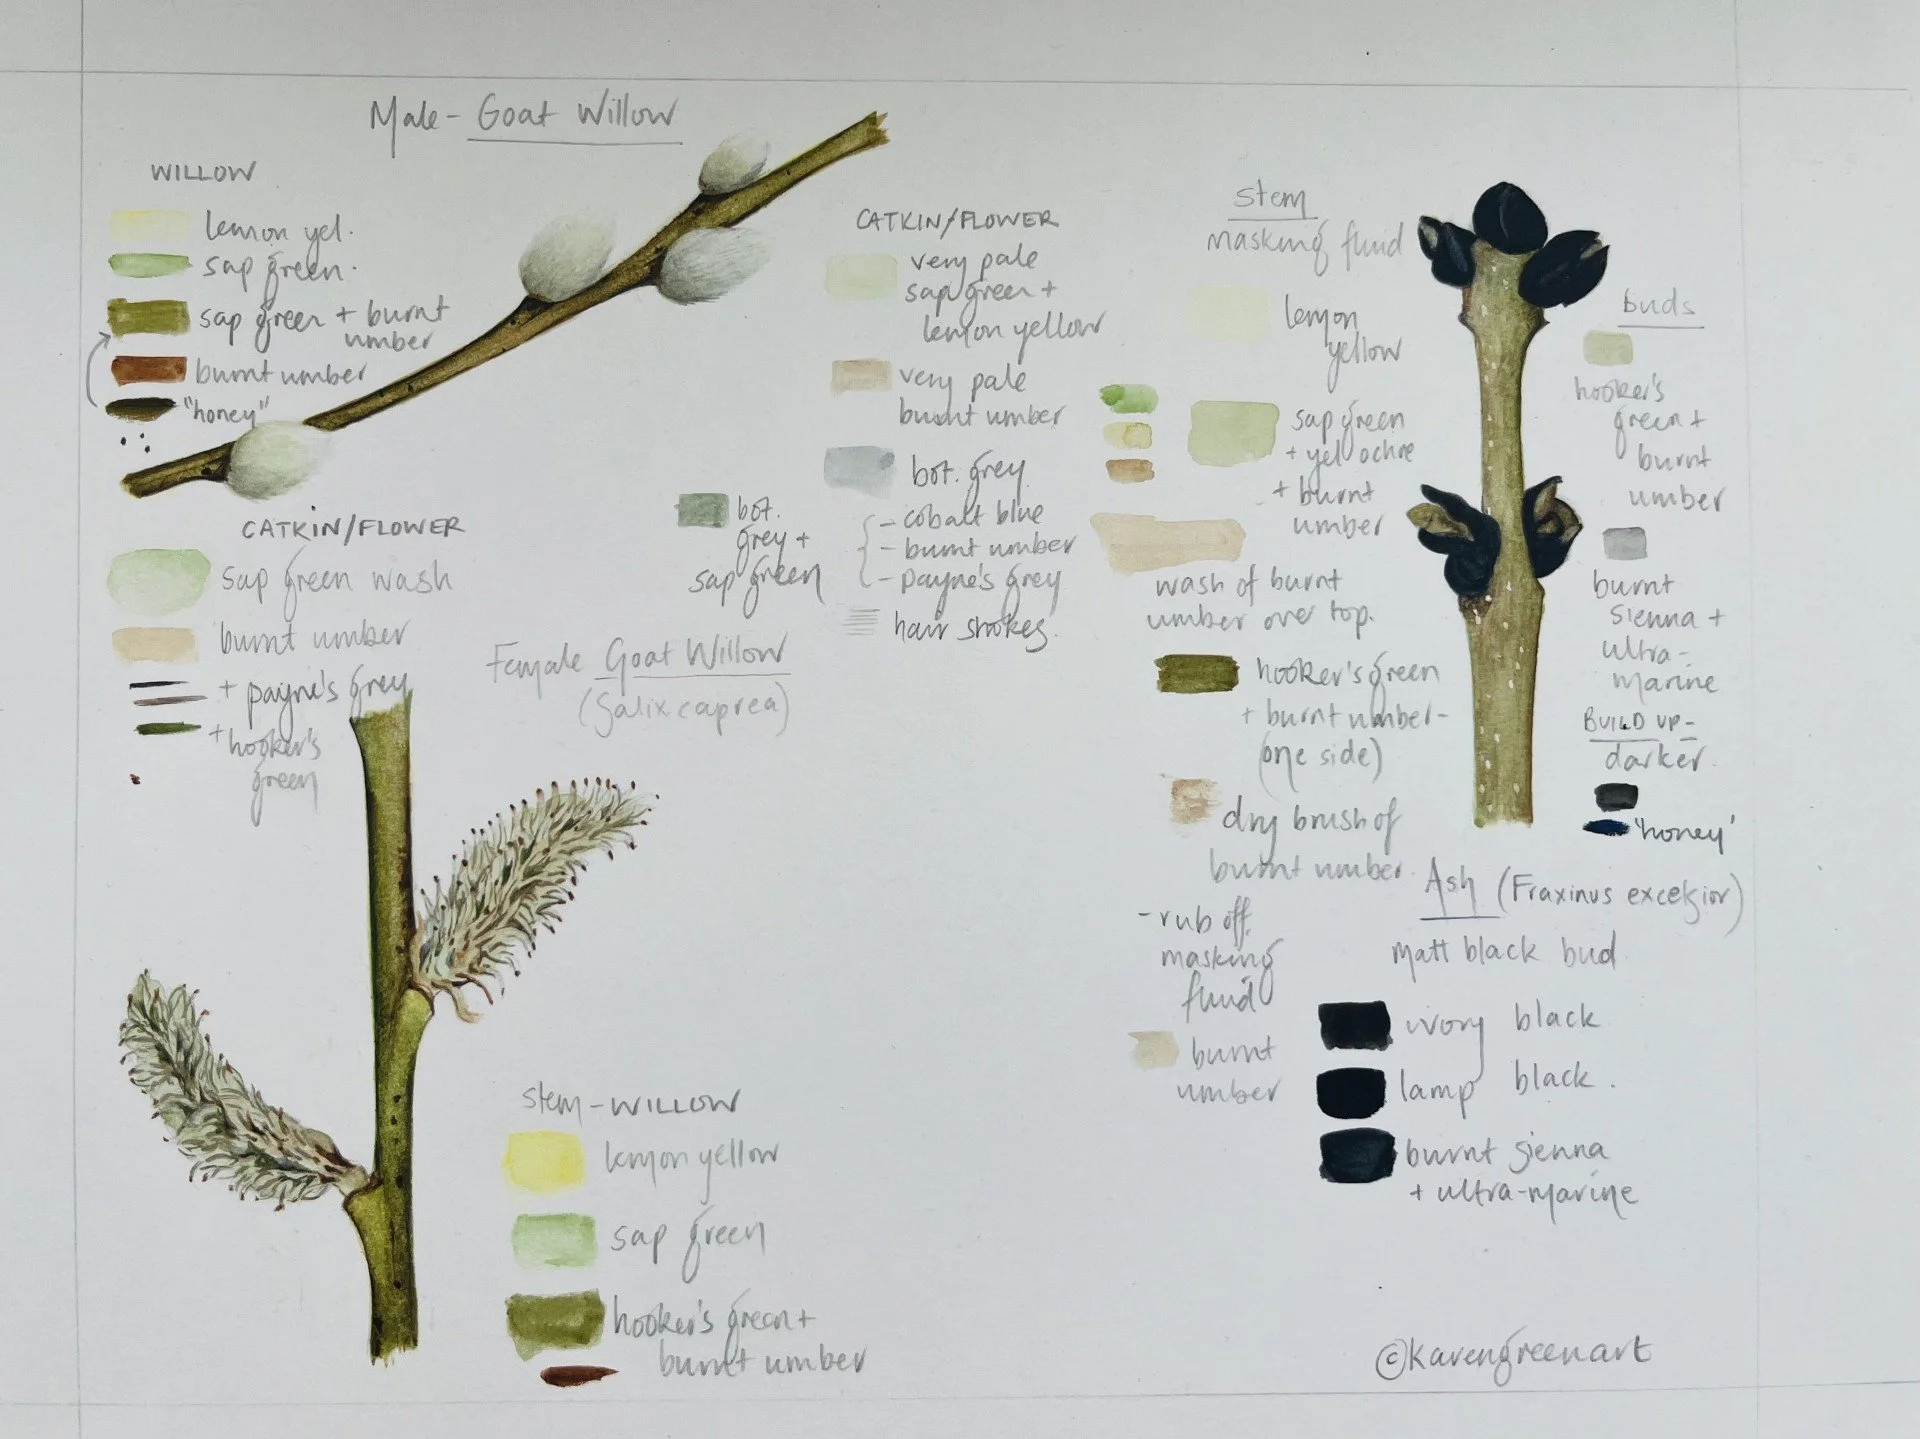 Male - Goat Willow
WILLOW
lemon yel.
sap green.
sap green + burnt
umber
burnt umber
"honey"
CATKIN/FLOWER
very pale
sap green +
lemon yellow
very pale
burnt umber
bot. grey
- cobalt blue
- burnt umber
- payne's grey
hair strokes.
bot.
grey +
sap green
CATKIN/FLOWER
sap green wash
burnt umber
+ payne's grey
+ hooker's
green
Female Goat Willow
(Salix caprea)
Stem - WILLOW
lemon yellow
sap green
hooker's green +
burnt umber
Stem
masking fluid
lemon
yellow
sap green
+ yel ochre
+ burnt
umber
wash of burnt
umber over top.
hooker's green
+ burnt umber -
(one side)
dry brush of
burnt umber.
- rub off
masking
fluid
burnt
umber
buds
hooker's
green +
burnt
umber
burnt
sienna +
ultra-
marine
BUILD UP -
darker.
'honey'
Ash (Fraxinus excelsior)
Matt black bud
ivory black
lamp black.
burnt sienna
+ ultra-marine
©karengreenart